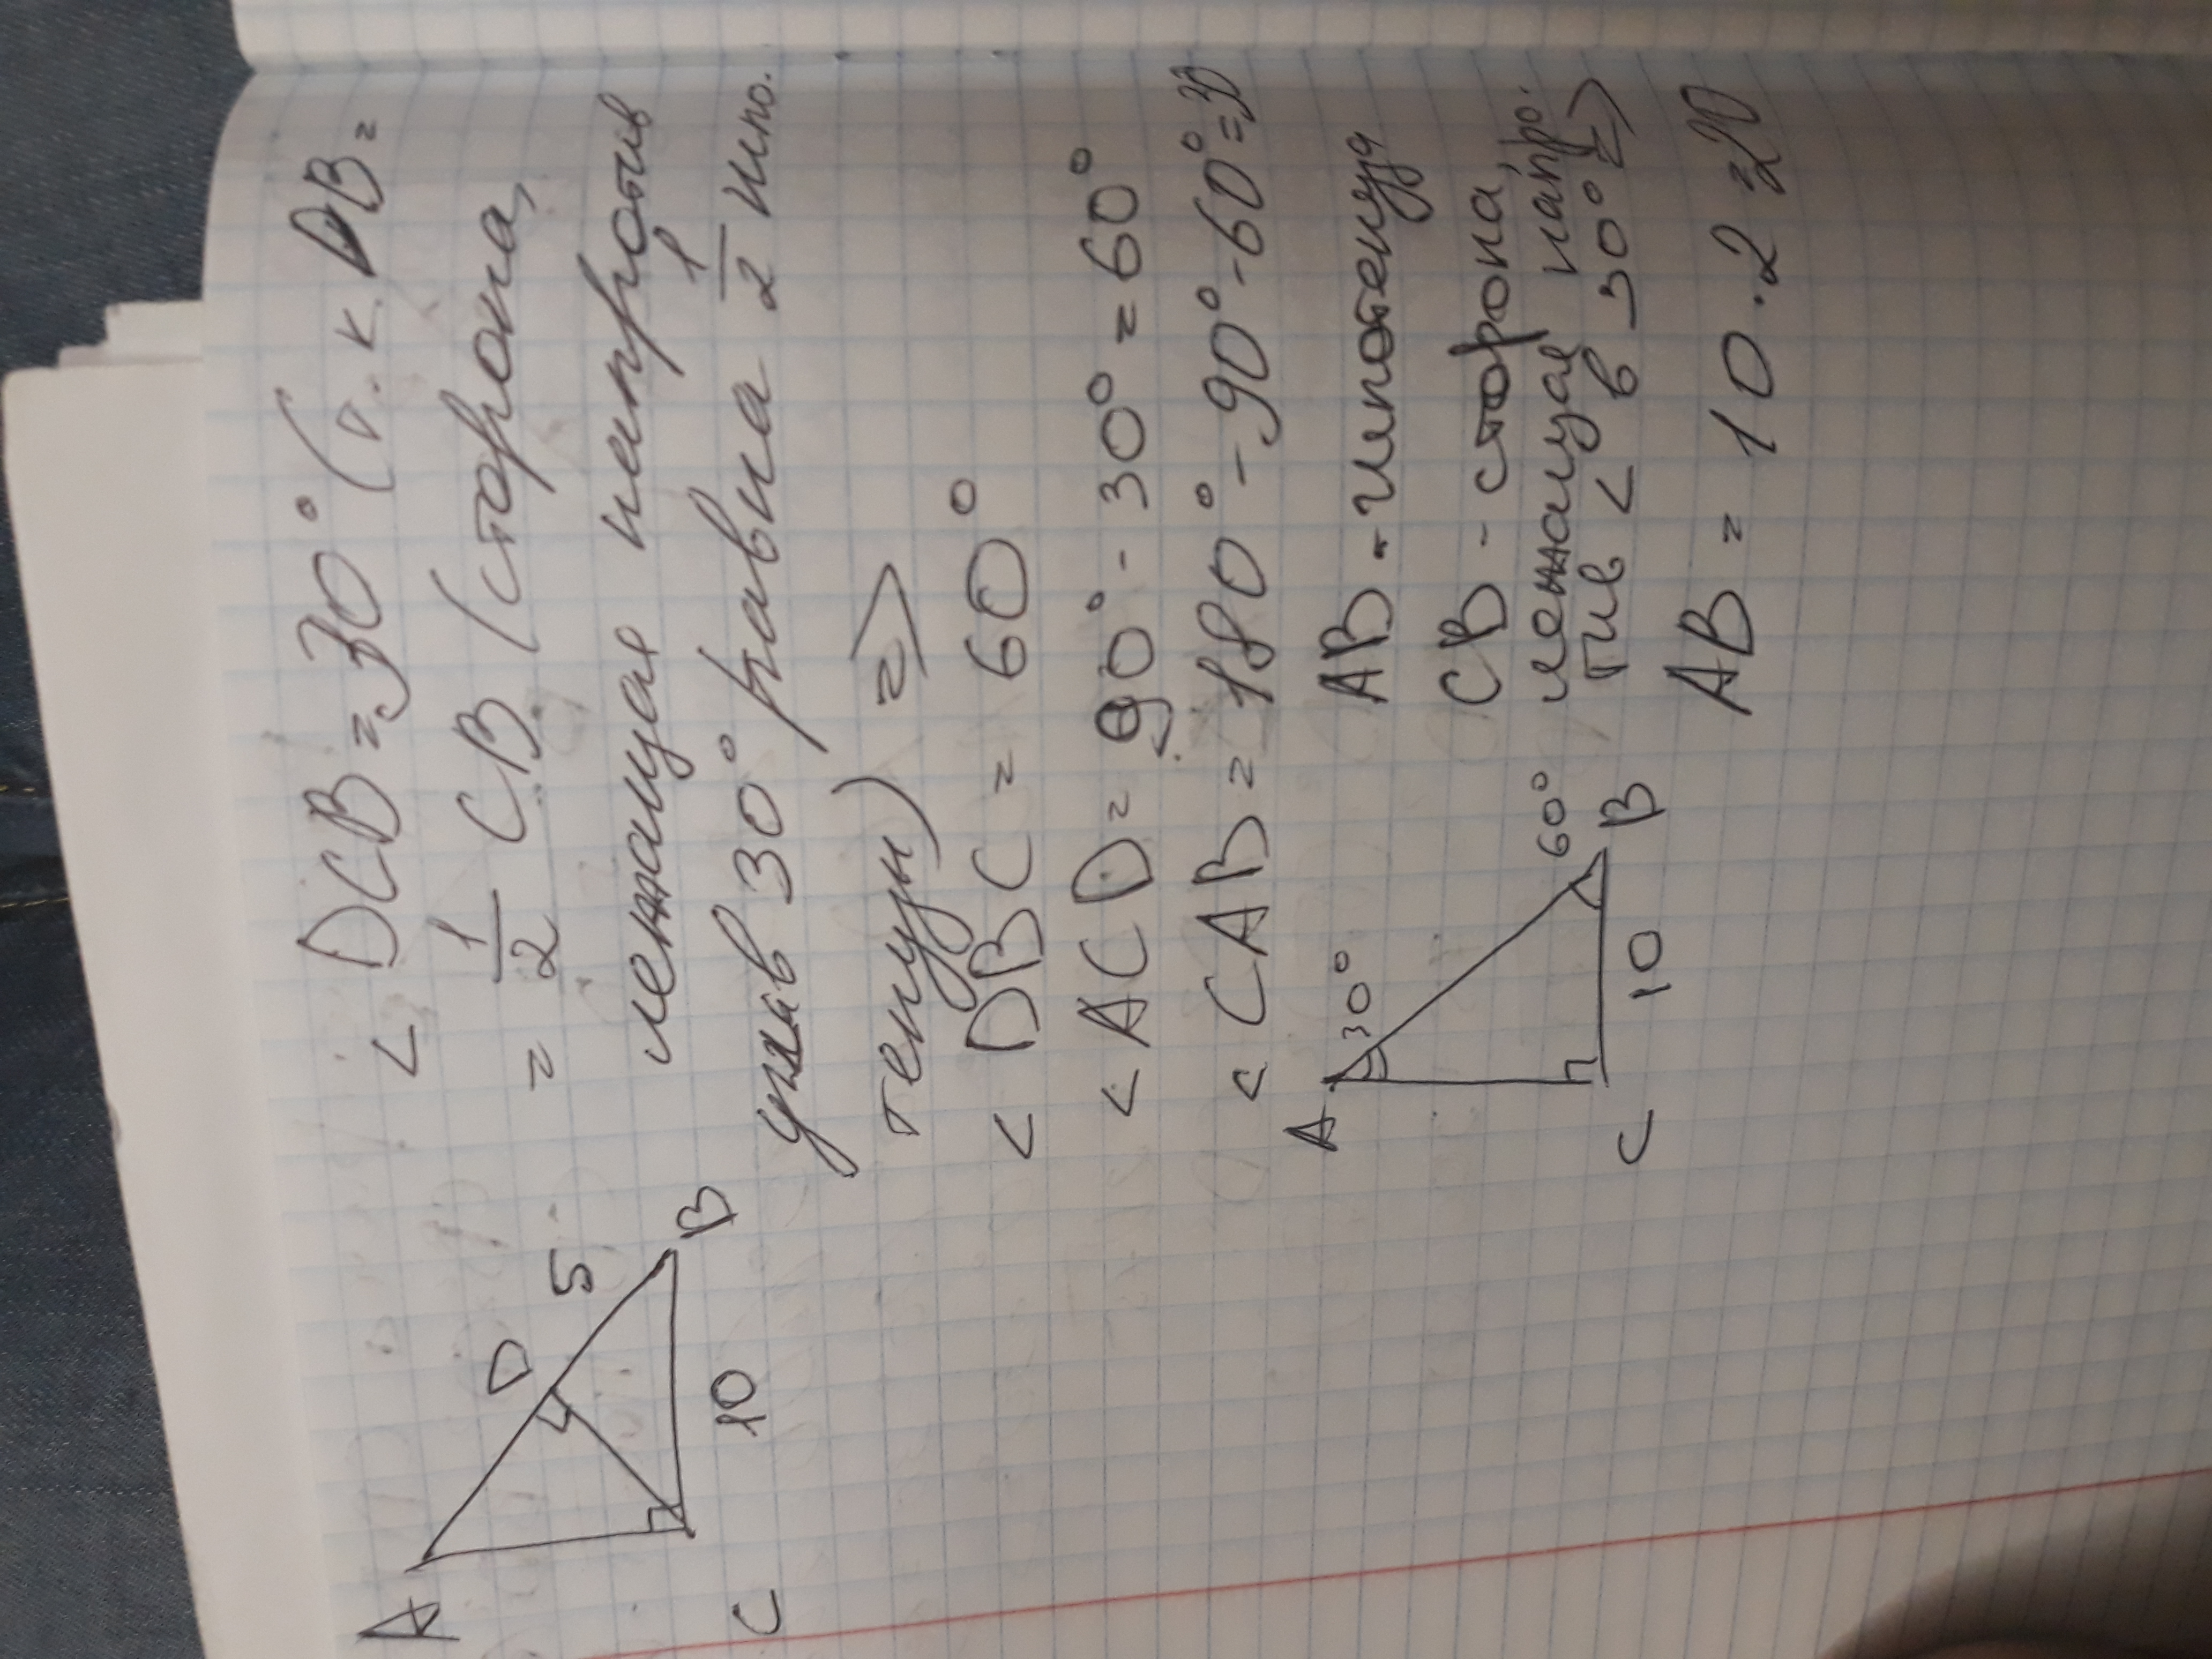 A
D
5
C
10
B
< DCB = 30° (т.к. DB =
= 1/2 CB (сторона,
лежащая напротив
угла в 30° равна 1/2 гипо.
тенузы) =>
< DBC = 60°
< ACD = 90° - 30° = 60°
< CAB = 180° - 90° - 60° = 30
A
30°
60°
C
10
B
AB - гипотенуза
CB - сторона,
лежащая напро.
тив < в 30° =>
AB = 10 · 2 = 20